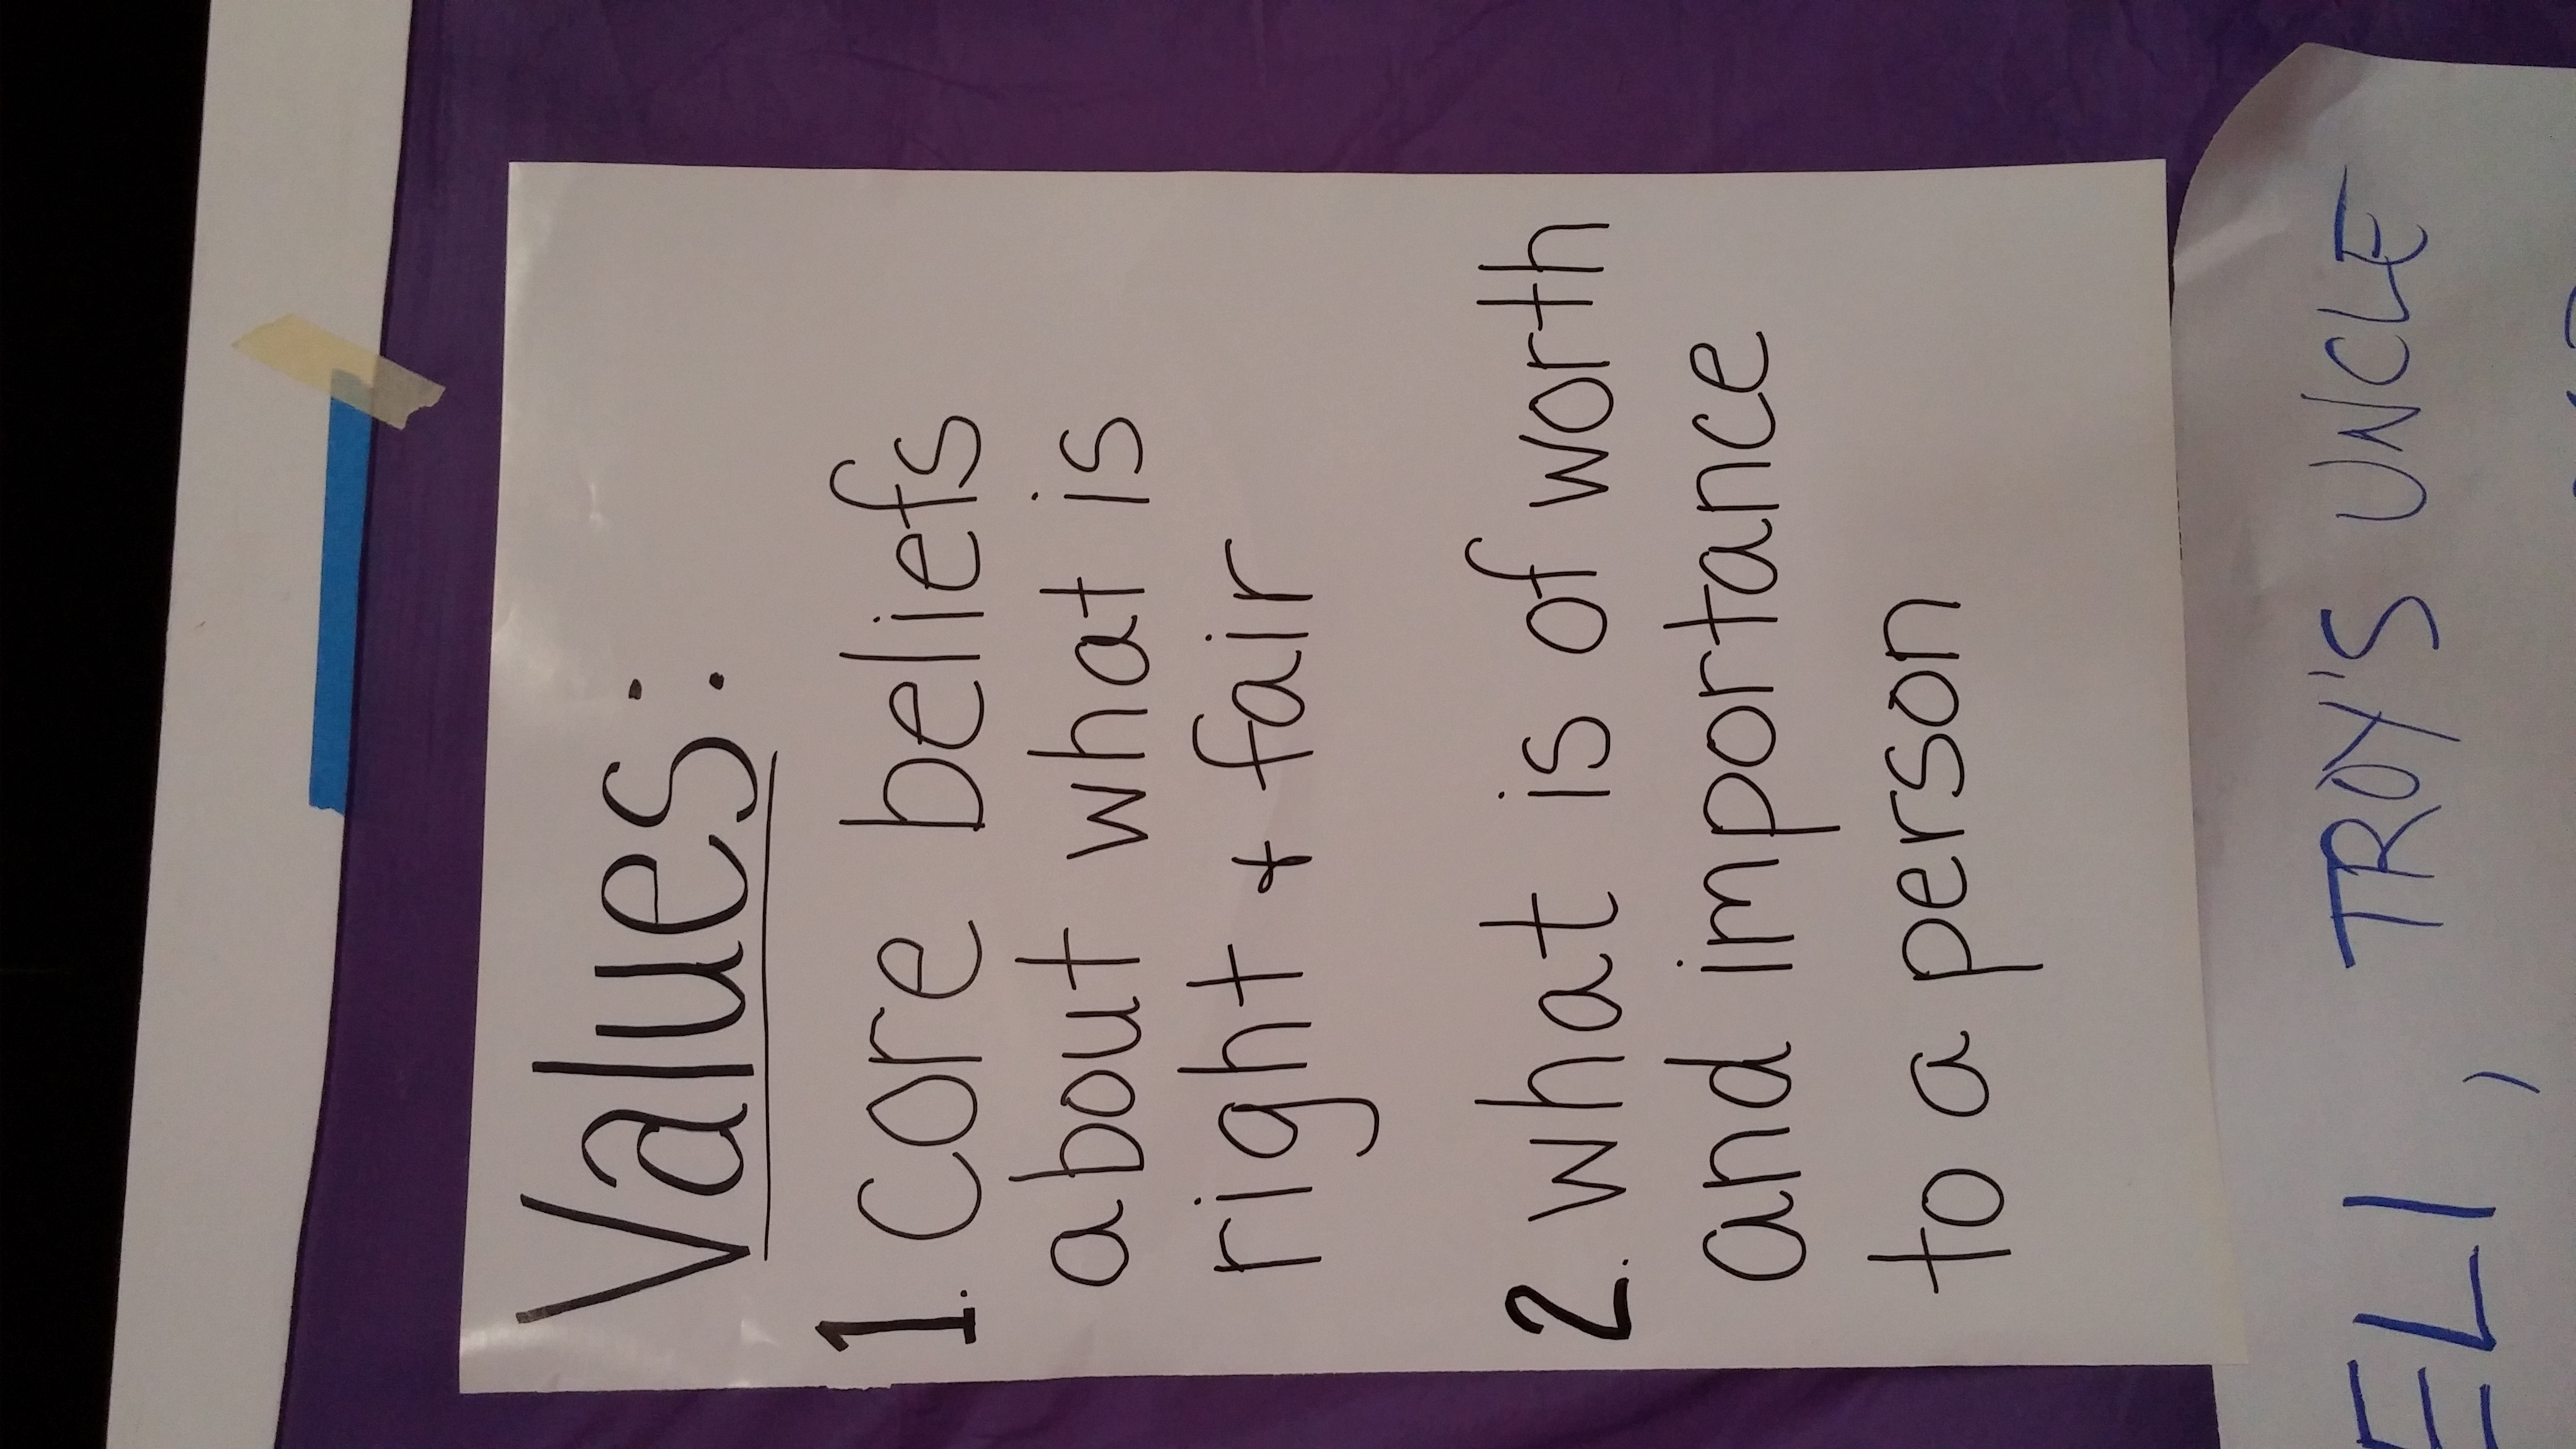 Values:
1. core beliefs
about what is
right + fair
2. what is of worth
and importance
to a person
ELI, TROY'S UNCLE